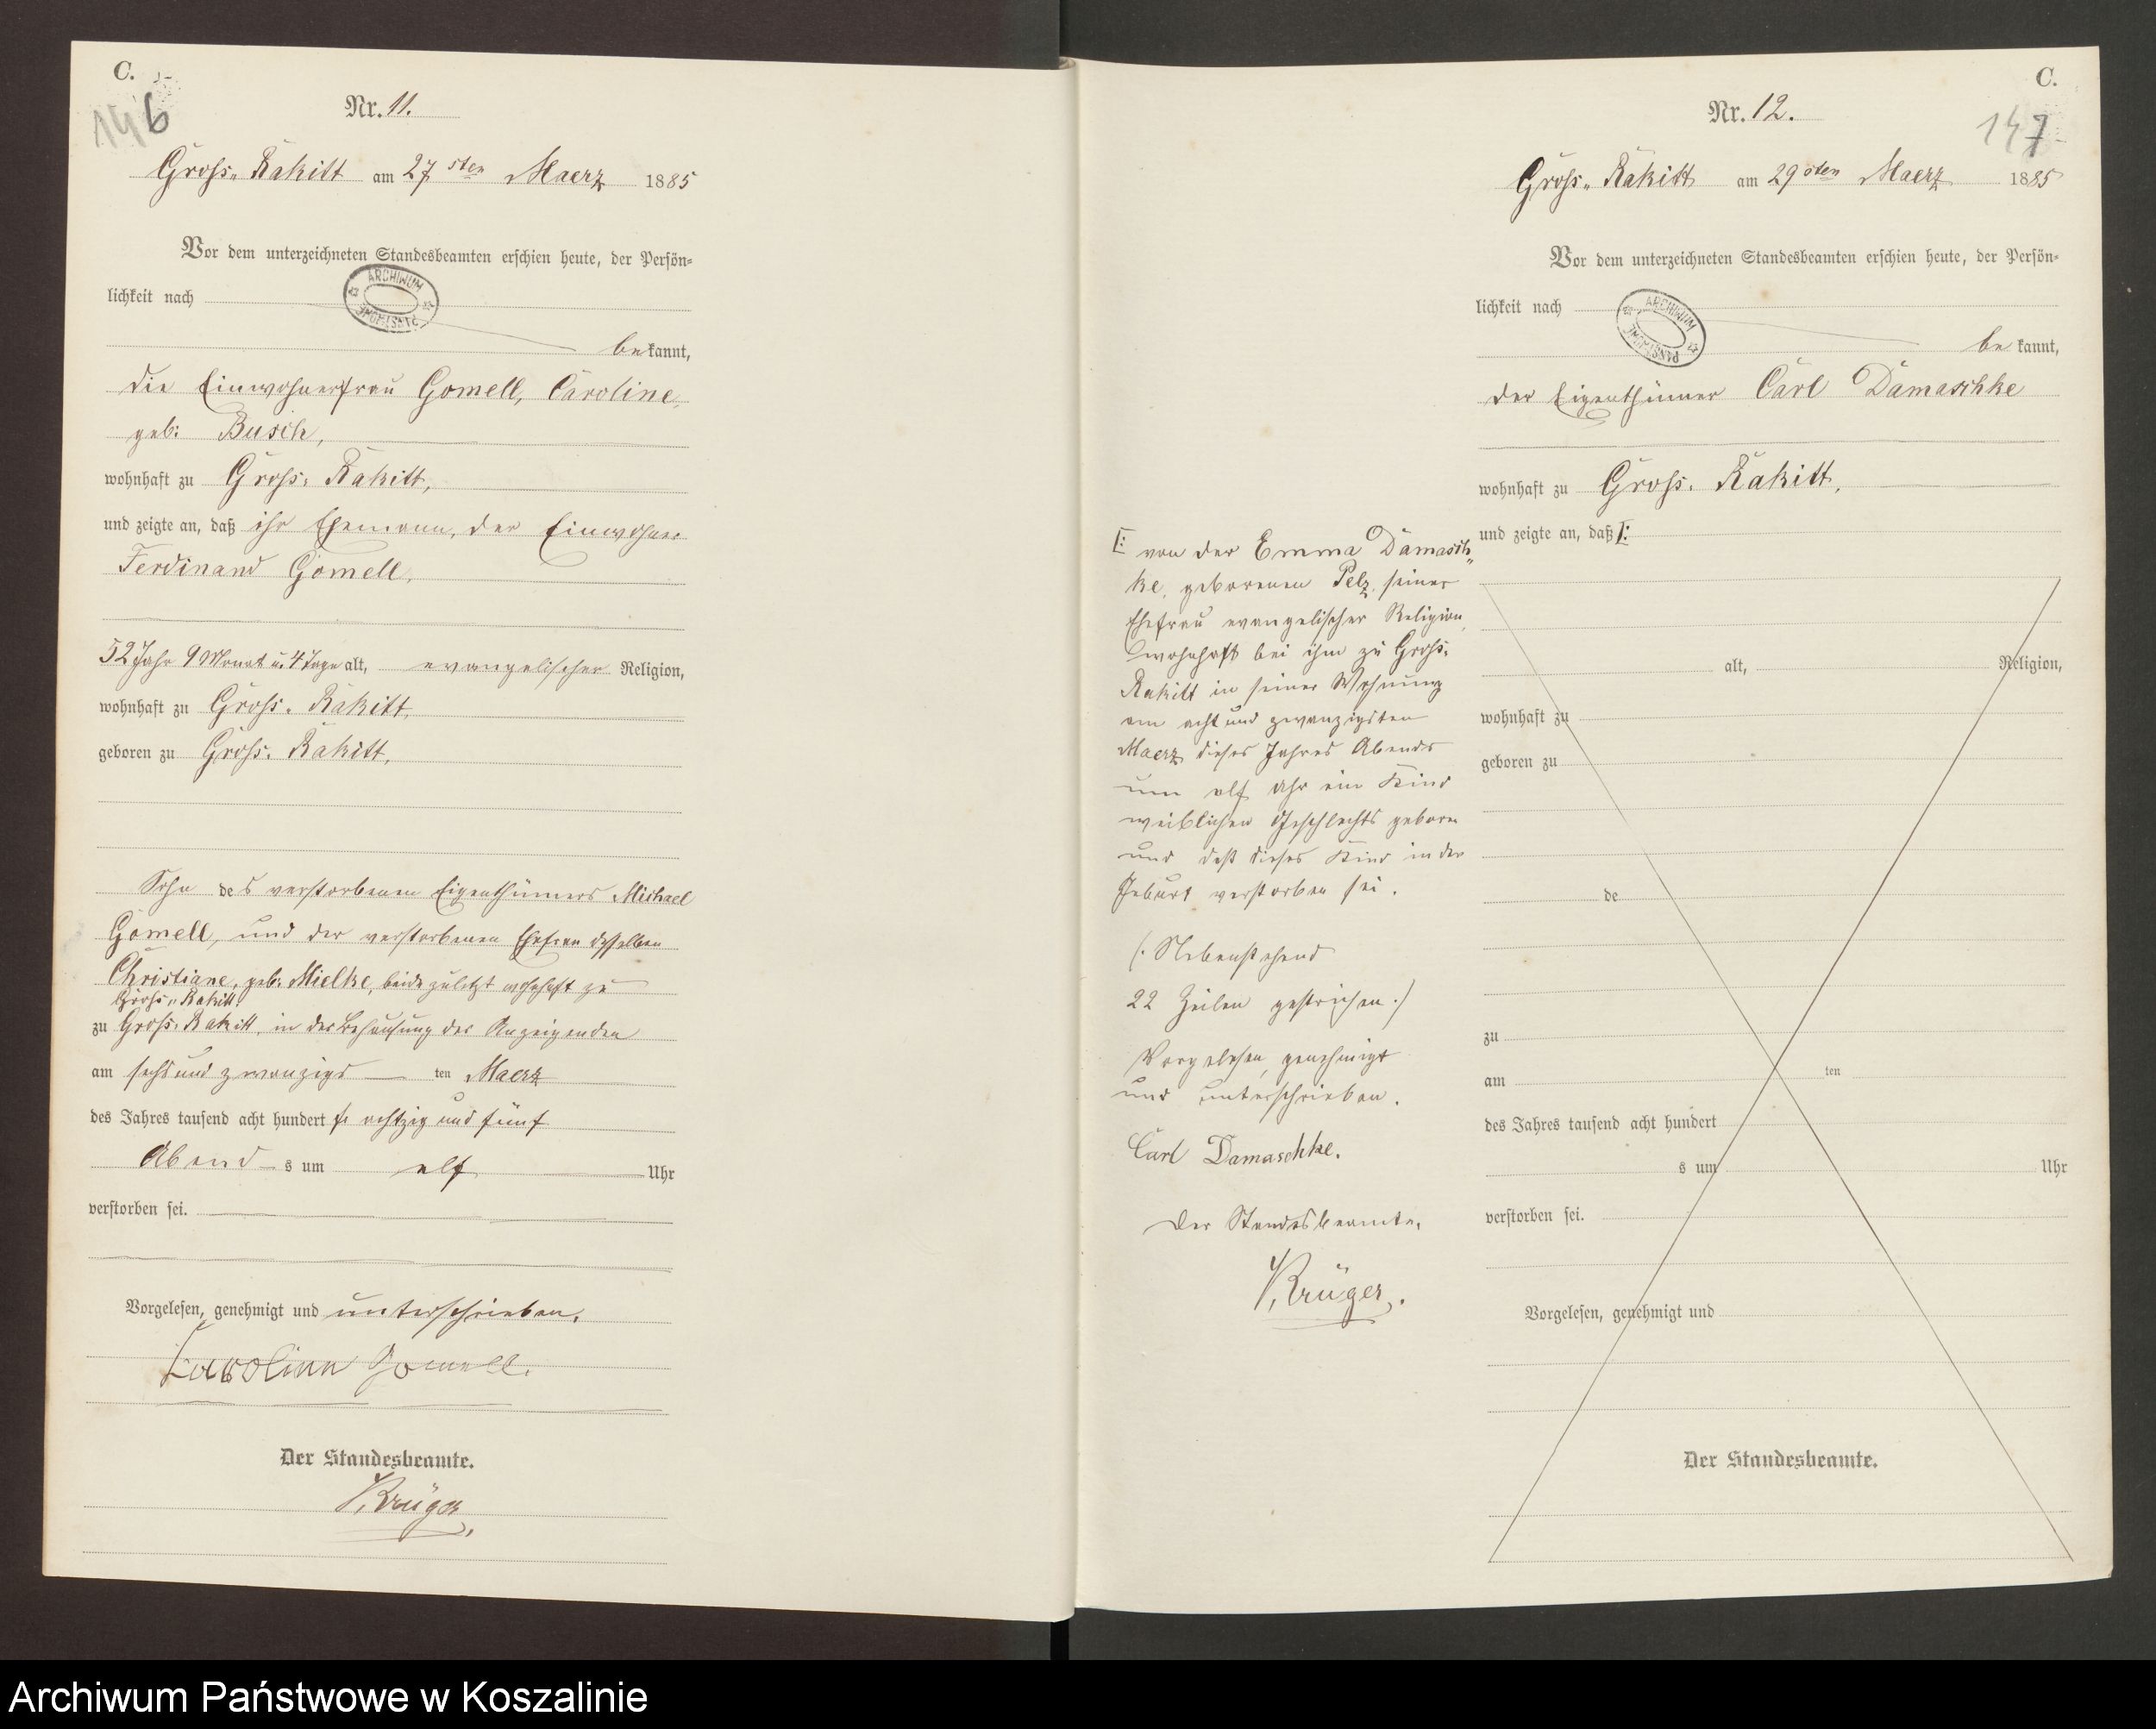 C.
146
Nr. 11.
Gross-Rakitt am 27sten Maerz 1885
Vor dem unterzeichneten Standesbeamten erschien heute, der Persön-
lichkeit nach
ARCHIWUM PAŃSTWOWE
bekannt,
die Einwohnerfrau Gomell, Caroline,
geb: Busch,
wohnhaft zu Gross-Rakitt,
und zeigte an, daß ihr Ehemann, der Einwohner
Ferdinand Gomell,
52 Jahr 9 Monat u. 4 Tage alt, evangelischer Religion,
wohnhaft zu Gross-Rakitt,
geboren zu Gross-Rakitt,
Sohn des verstorbenen Eigenthümers Michael
Gomell, und der verstorbenen Ehefrau desselben
Christiane, geb: Mielke, beide zuletzt wohnhaft zu
Gross-Rakitt.
zu Gross-Rakitt, in der Behausung der Anzeigenden
am sechsundzwanzigsten Maerz
des Jahres tausend acht hundert achtzig und fünf
Abends um elf Uhr
verstorben sei.
Vorgelesen, genehmigt und unterschrieben.
Karoline Gomell.
Der Standesbeamte.
Krüger.
C.
147
Nr. 12.
Gross-Rakitt am 29sten Maerz 1885
Vor dem unterzeichneten Standesbeamten erschien heute, der Persön-
lichkeit nach
ARCHIWUM PAŃSTWOWE
bekannt,
der Eigenthümer Carl Damaschke
wohnhaft zu Gross-Rakitt,
und zeigte an, daß [:
[: von der Emma Damasch
ke, geborenen Pelz, seiner
Ehefrau evangelischer Religion,
wohnhaft bei ihm zu Gross-
Rakitt in seiner Wohnung
am acht und zwanzigsten
Maerz dieses Jahres Abends
um elf Uhr ein Kind
weiblichen Geschlechts geboren
und daß dieses Kind in der
Geburt verstorben sei.
(: Nebenstehend
22 Zeilen gestrichen :)
Vorgelesen, genehmigt
und unterschrieben.
Carl Damaschke.
Der Standesbeamte.
Krüger.
alt, Religion,
wohnhaft zu
geboren zu
de
zu
am ten
des Jahres tausend acht hundert
s um Uhr
verstorben sei.
Vorgelesen, genehmigt und
Der Standesbeamte.
Archiwum Państwowe w Koszalinie